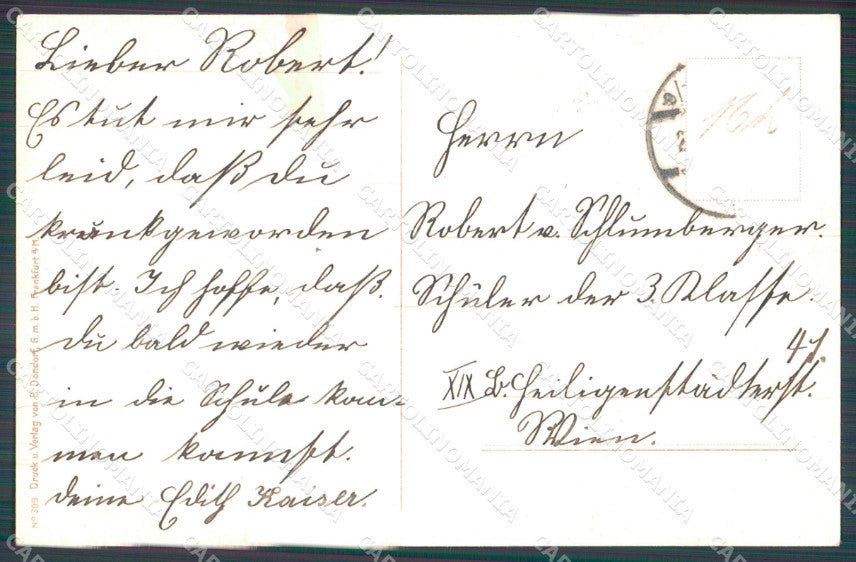 Lieber Robert!
Es tut mir sehr
leid, daß du
krank geworden
bist. Ich hoffe, daß
du bald wieder
in die Schule kom-
men kannst.
Deine Edith Kaiser.
Herrn
Robert v. Schlumberger.
Schüler der 3. Klasse.
XIX B. Heiligenstädterst.
41.
Wien.
No 399 Druck u. Verlag von B. Dondorf, G.m.b.H. Frankfurt a/M.
CARTOLINOMANIA